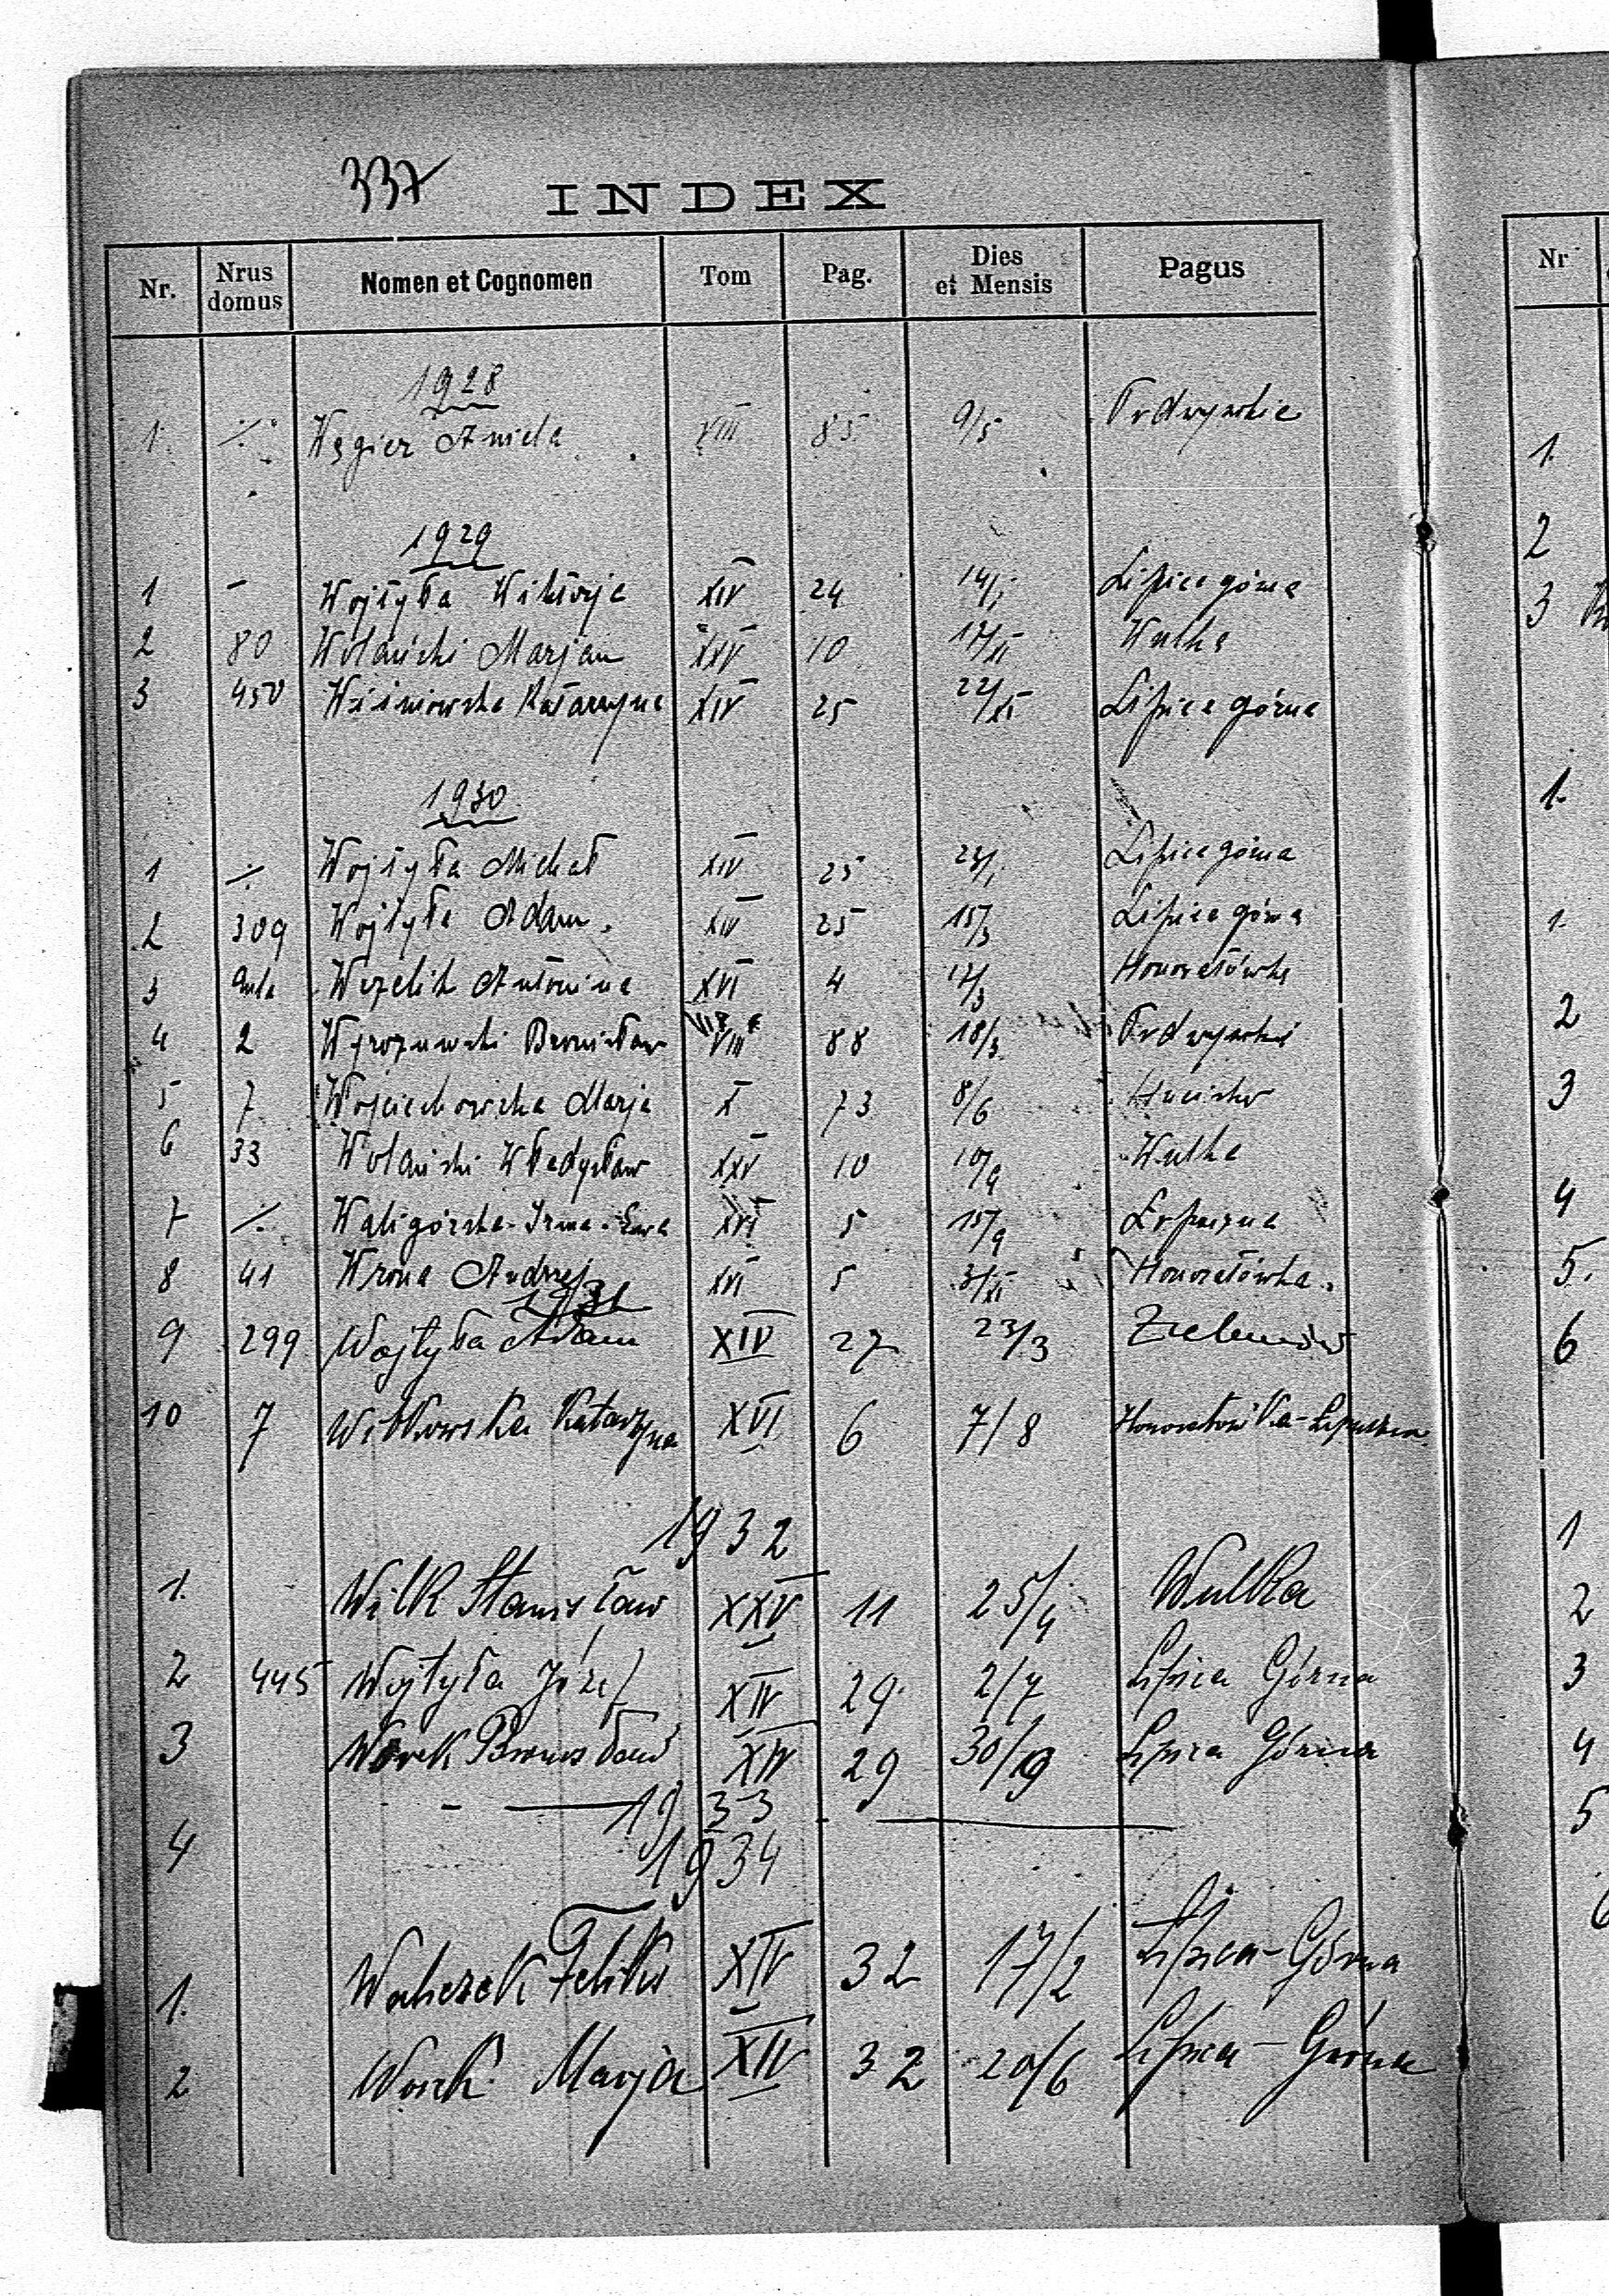 337
INDEX
Nr. Nrus domus Nomen et Cognomen Tom Pag. Dies et Mensis Pagus
1928
1. ./. Węgier Aniela XIII 85 9/5 Podwysokie
1929
1 - Wojtyła Wiktorja XIV 24 14/1 Lipica górna
2 80 Wolański Marjan XXV 10 17/XI Wulka
3 450 Wiśniowska Katarzyna XIV 25 22/XI Lipica górna
1930
1 ./. Wojtyła Michał XIV 25 23/1 Lipica górna
2 309 Wojtyła Adam XIV 25 15/3 Lipica górna
3 Antonina XVI 4 17/3 Honoratówka
4 2 Bronisław VIII 88 18/3 Podwysokie
5 7 Wojciechowska Marja X 73 8/6 Hucisko
6 33 Wolański Władysław XXV 10 Wulka
7 ./. Waligórska Irma Ewa XVI 5 15/9 Łopuszna
8 41 Wrona Andrzej XVI 5 3/XI Honoratówka.
1931
9 299 Wojtyła Adam XIV 27 23/3 Zielenów
10 7 Witkowska Katarzyna XVI 6 7/8 Honoratówka-Łopuszna
1932
1. Wilk Stanisław XXV 11 25/4 Wulka
2 445 Wojtyła Józef XIV 29. 2/7 Lipica Górna
3 Worek Bronisław XIV 29 30/9 Lipica Górna
- — 1933 —
4 1934
1. Walczek Feliks XIV 32 17/2 Lipica-Górna
2 Worek Marja XIV 32 20/6 Lipica-Górna
Nr
1.
2
3
1.
1.
2
3
4
5.
6
1
2
3
4
5